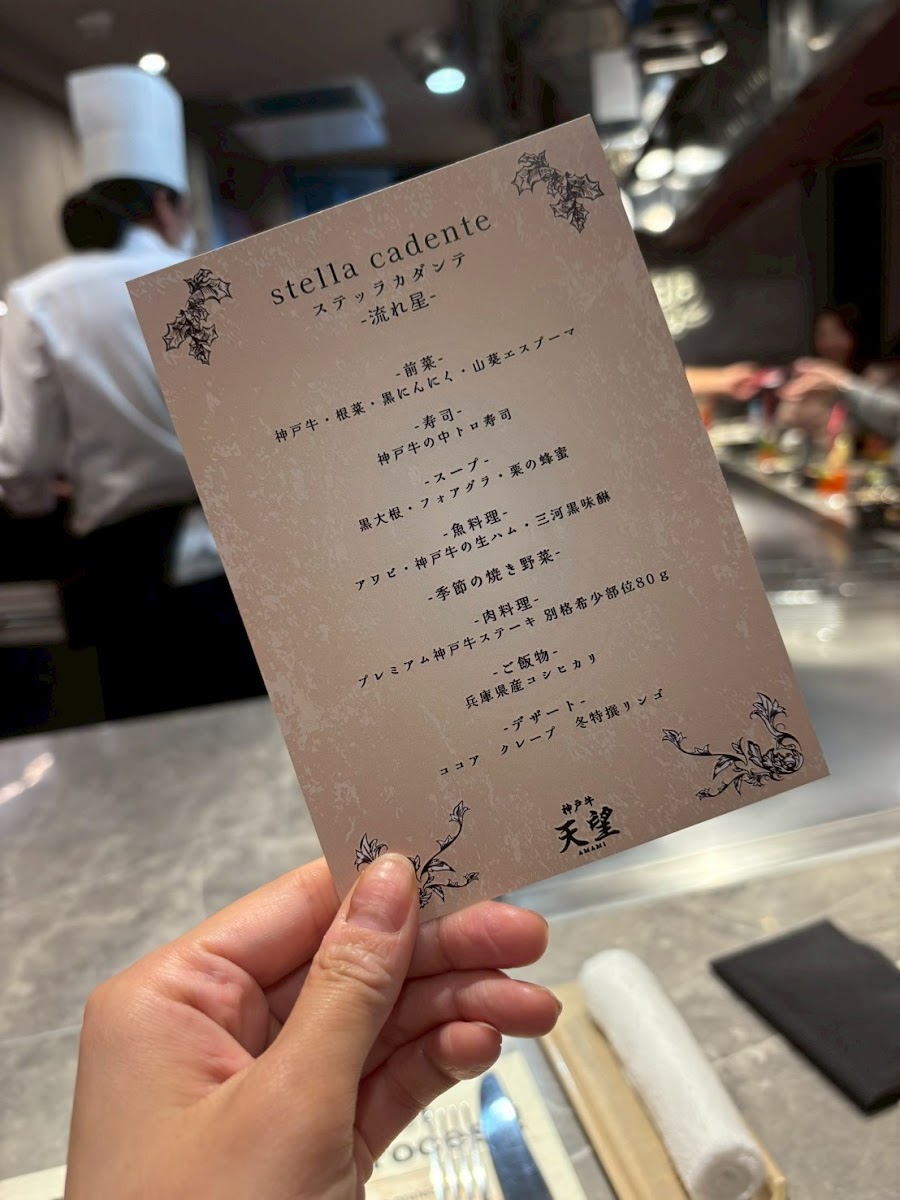 stella cadente
ステッラカダンテ
-流れ星-
-前菜-
神戸牛・根菜・黒にんにく・山葵エスプーマ
-寿司-
神戸牛の中トロ寿司
-スープ-
黒大根・フォアグラ・栗の蜂蜜
-魚料理-
アワビ・神戸牛の生ハム・三河黒味醂
-季節の焼き野菜-
-肉料理-
プレミアム神戸牛ステーキ 別格希少部位80g
-ご飯物-
兵庫県産コシヒカリ
-デザート-
ココア クレープ 冬特撰リンゴ
神戸牛
天望
AMAMI